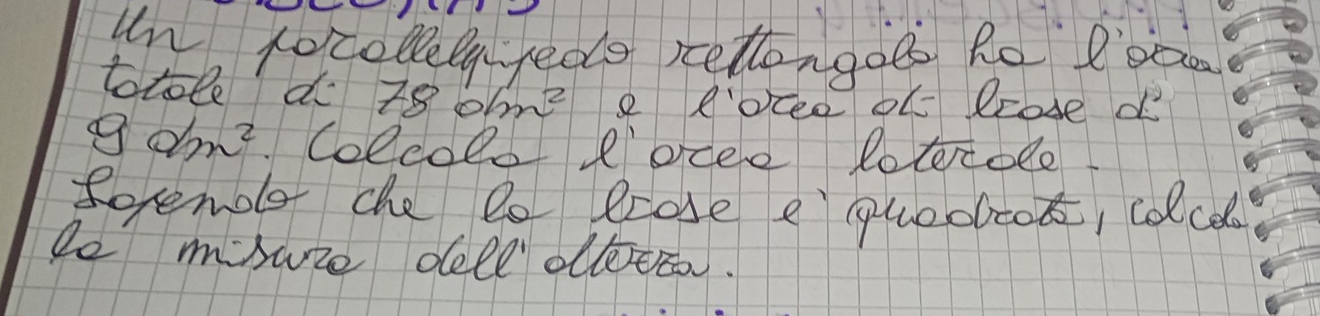 Un parallelepipedo rettangolo ha l'area
totale di 78 dm² e l'area di base di
9 dm². Calcola l'area laterale.
Sapendo che la base e' quadrata, calcola
la misura dell'altezza.